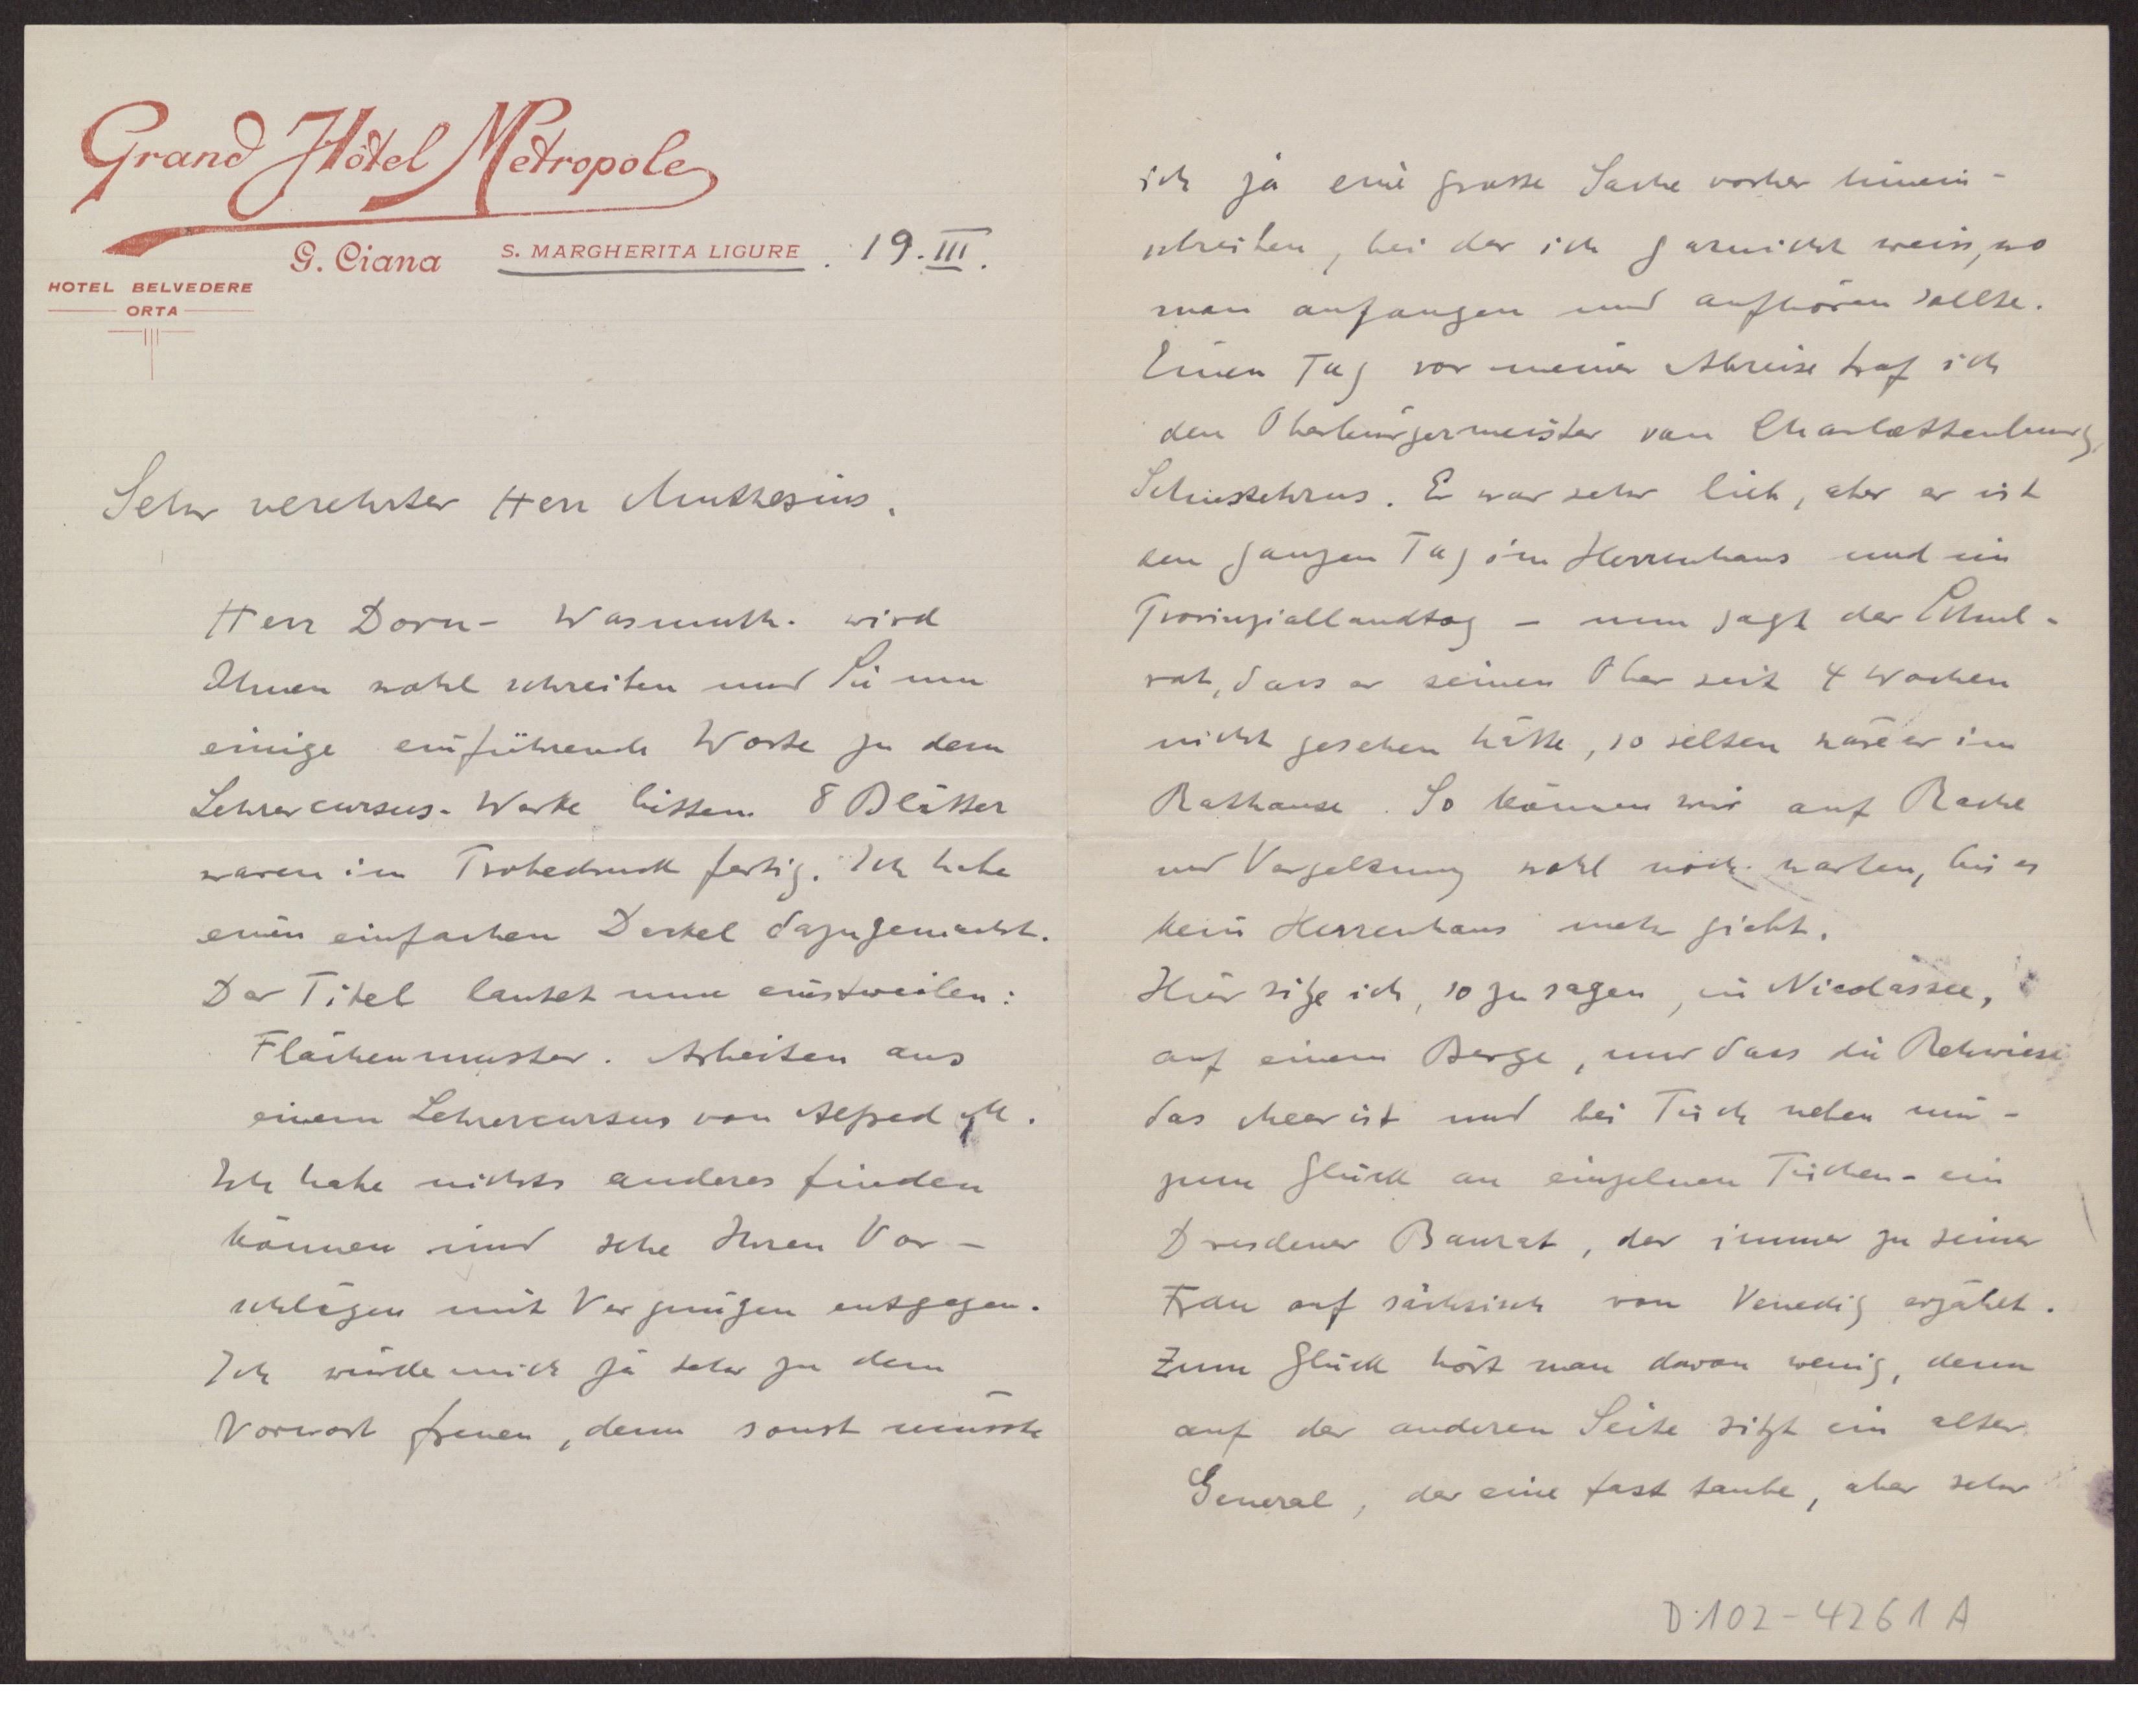 Grand Hôtel Metropole
G. Ciana S. MARGHERITA LIGURE. 19. III.
HOTEL BELVEDERE
ORTA
Sehr verehrter Herr Muthesius,
Herr Dorn-Wasmuth. wird
Ihnen wohl schreiben und Sie um
einige einführende Worte zu dem
Lehrercursus-Werke bitten. 8 Blätter
waren im Probedruck fertig. Ich habe
einen einfachen Deckel dazugemacht.
Der Titel lautet nun einstweilen:
Flächenmuster. Arbeiten aus
einem Lehrercursus von Alfred M.
Ich habe nichts anderes finden
können und sehe Ihren Vor-
schlägen mit Vergnügen entgegen.
Ich würde mich ja sehr zu dem
Vorwort freuen, denn sonst müsste
ich ja eine grosse Sache vorher hinein-
schreiben, bei der ich garnicht weiss, wo
man anfangen und aufhören sollte.
Einen Tag vor meiner Abreise traf ich
den Oberbürgermeister von Charlottenburg,
Schustehrus. Er war sehr lieb, aber er ist
den ganzen Tag im Herrenhaus und im
Provinziallandtag – nun sagt der Schul-
rat, dass er seinen Ober seit 4 Wochen
nicht gesehen hätte, so selten wäre er im
Rathause. So können wir auf Rache
und Vergeltung wohl noch warten, bis es
kein Herrenhaus mehr giebt.
Hier sitze ich, so zu sagen, in Nicolassee,
auf einem Berge, nur dass die Rehwiese
das Meer ist und bei Tisch neben mir -
zum Glück an einzelnen Tischen - ein
Dresdener Baurat, der immer zu seiner
Frau auf sächsisch von Venedig erzählt.
Zum Glück hört man davon wenig, denn
auf der anderen Seite sitzt ein alter
General, der eine fast taube, aber sehr
D 102-4261 A